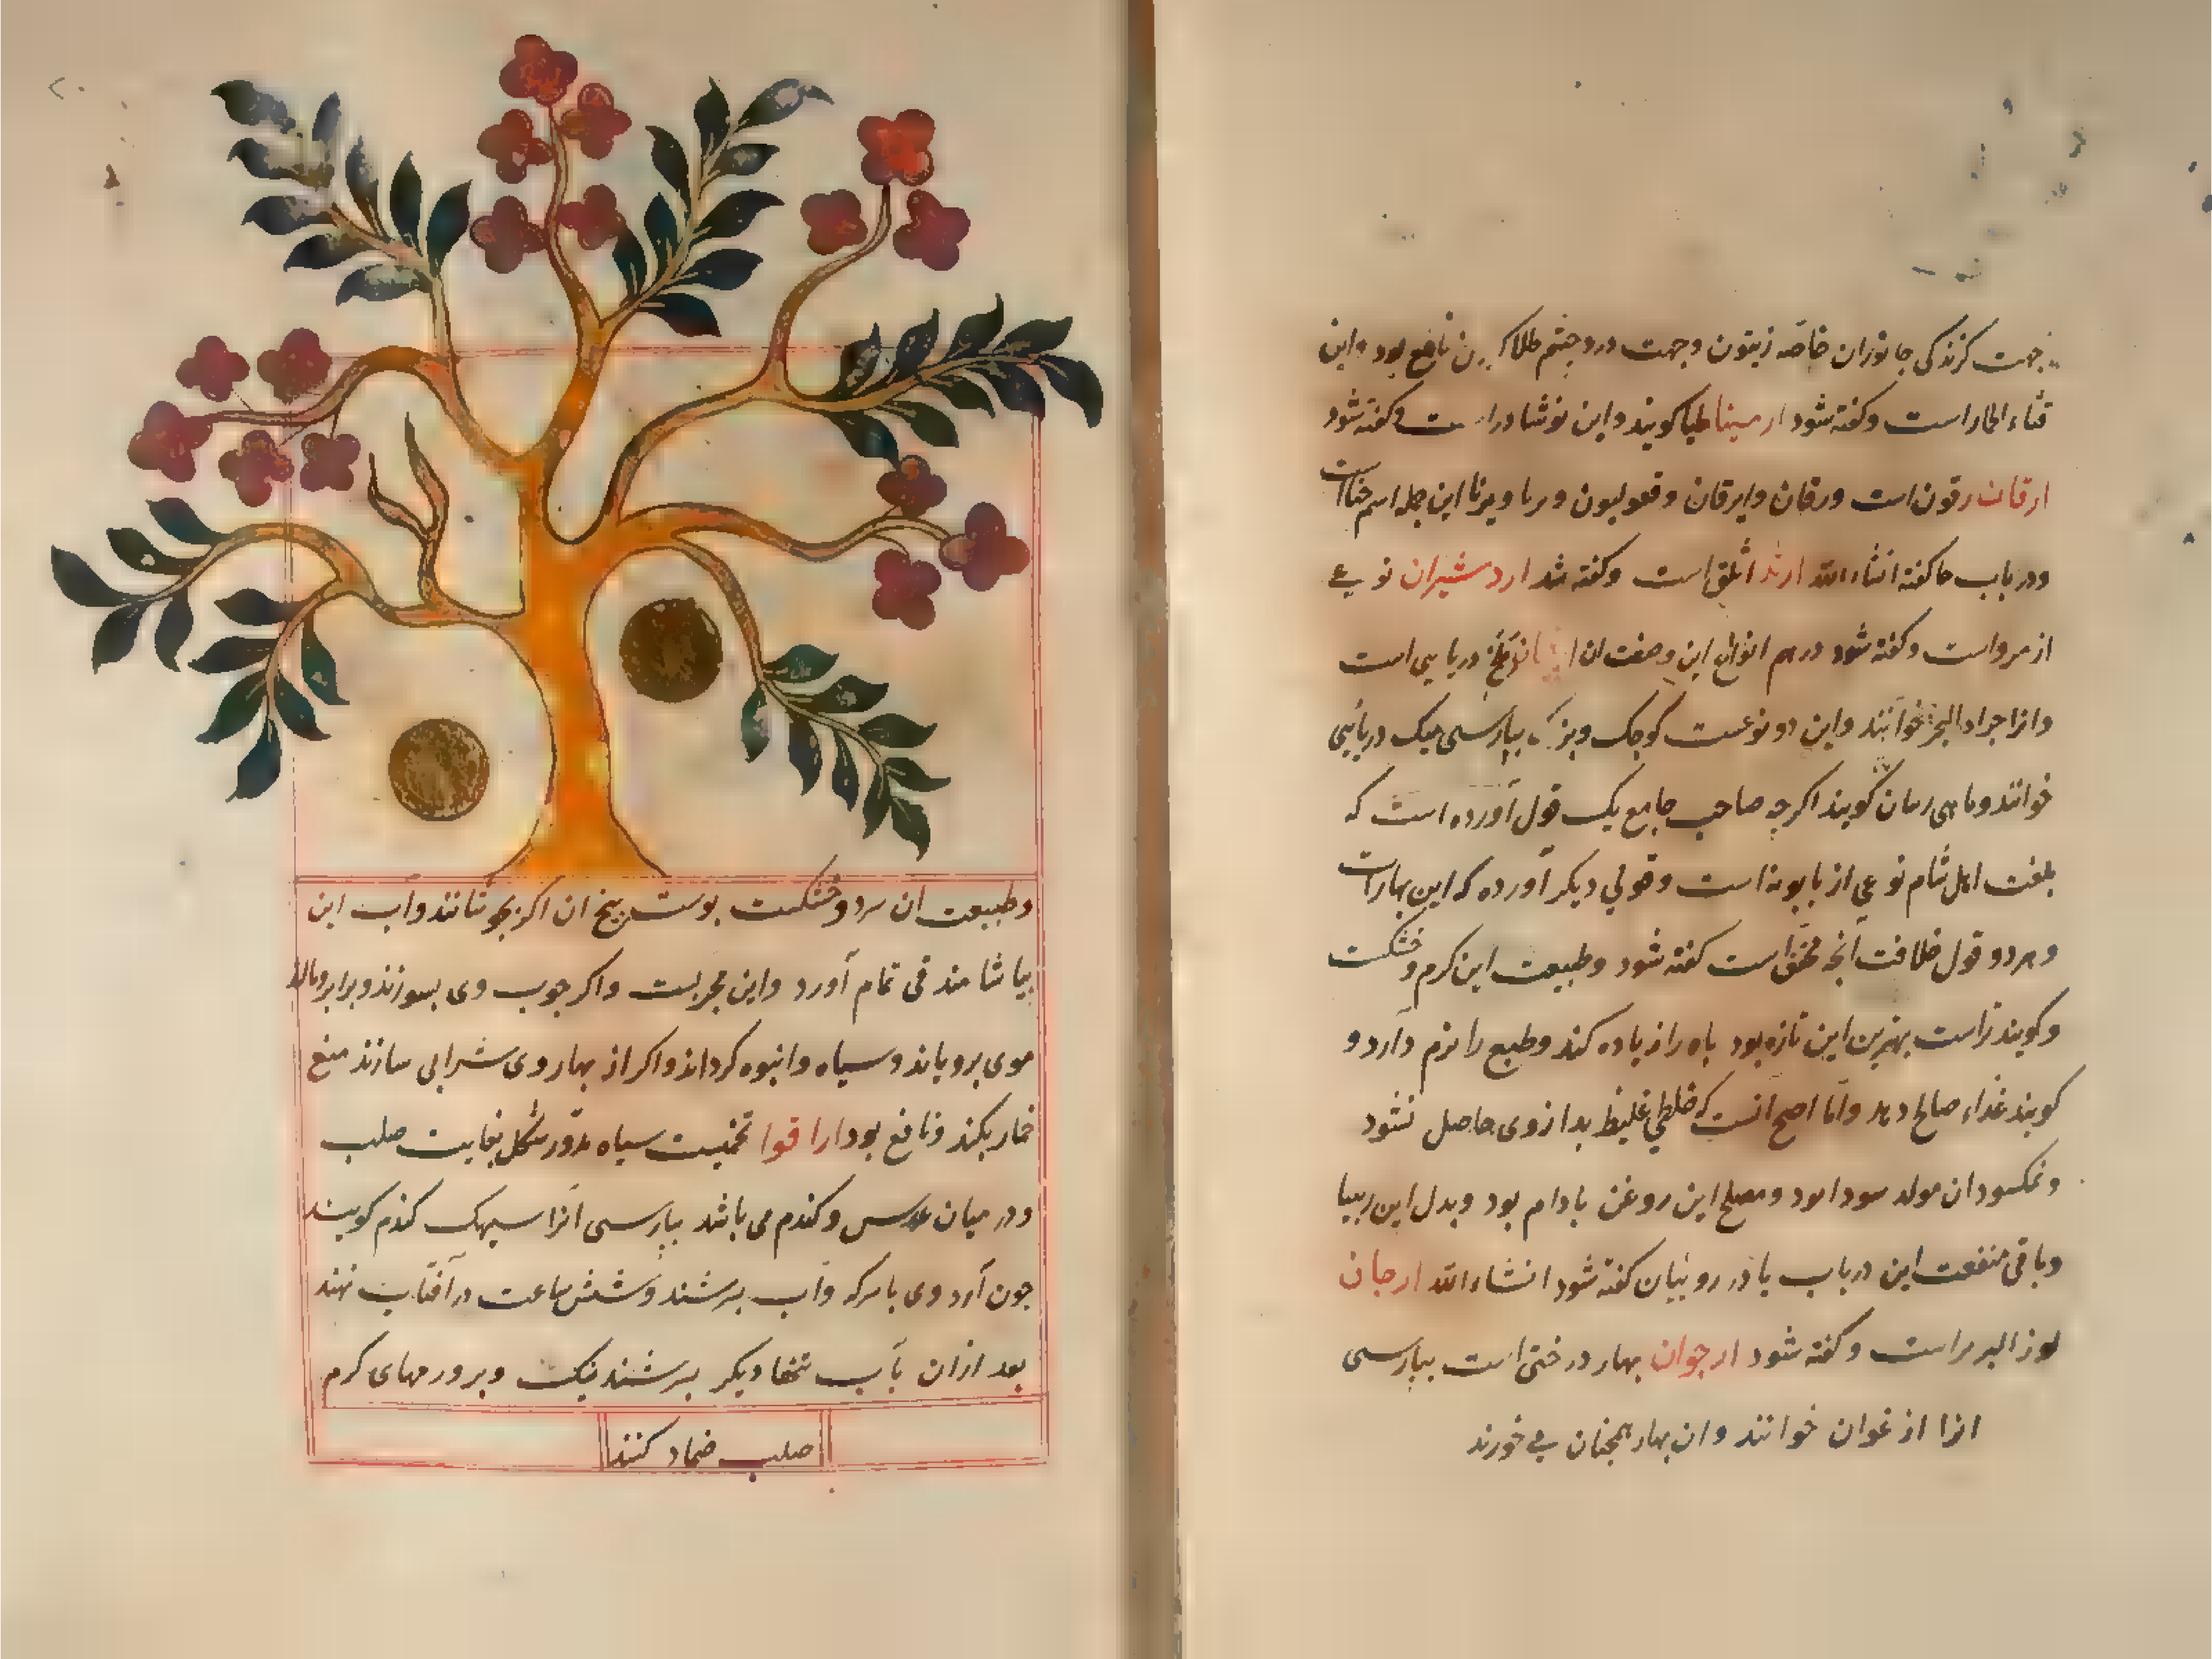 جهت کزندکی جانوران خاصه زیتون وجهت درد چشم طلا کردن نافع بود واین
قثاء الحمار است وکفته شود ارمیناطیا کویند واین نوشادر است وکفته شود
ارقان رقون است ورقان وایرقان وقعولیون و و یرنا این جمله اسم حناست
ودر باب حا کفته انشاءالله ارثد اثلق است وکفته شد اردشیران نوعی
از مرو است وکفته شود در مرو انواع این وصفت ان دریایی است
وانرا جراد البحر خوانند واین دو نوعست کوچک وبزرک بپارسی میک دریائی
خوانند وماهی رمان کویند اکرچه صاحب جامع یک قول آورده است که
بلغت اهل شام نوعی از بابونه است وقولی دیکر آورده که این بهارات
وهر دو قول خلافت آنچه محقق است کفته شود وطبیعت این کرم و خشکست
وکویند تراست بهترین این تازه بود باه را زیاده کند وطبع را نرم دارد و
کویند غذاء صالح دهد واما اصح انست که خلطی غلیظ بد از وی حاصل نشود
ونمکسود ان مولد سودا بود ومصلح این روغن بادام بود وبدل این ربیبا
وباقی منفعت این درباب با در روبیان کفته شود انشاءالله ارجان
لوز البربر است وکفته شود ارجوان بهار درختی است بپارسی
انرا ارغوان خوانند وان بهار همچنان می خورند
وطبیعت ان سرد وخشکست پوست بیخ ان اکر بجوشانند وآب این
بیاشامند قی تمام آورد واین مجربست واکر چوب وی بسوزند وبر ابرو مالند
موی برویاند وسیاه وانبوه کرداند واکر از بهار وی شرابی سازند منع
خمار بکند ونافع بود ارا قوا تخمیست سیاه مدور شکل بغایت صلب
ودر میان عدس وکندم می باشد بپارسی انرا سیهک کندم کویند
جون آرد وی با سرکه وآب بسرشند وشش ساعت در آفتاب نهند
بعد ازان بآب شفا دیکر بسرشند نیک وبر ورمهای کرم
صلب ضماد کنند